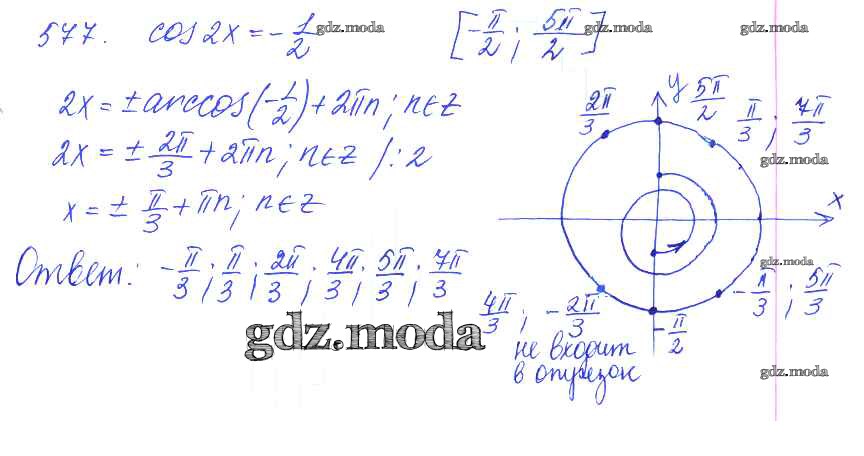 577. cos2x = -1/2 gdz.moda [-π/2; 5π/2] gdz.moda
2x = ±arccos(-1/2) + 2πn; n∈Z
2x = ± 2π/3 + 2πn; n∈Z /:2
x = ± π/3 + πn; n∈Z
Ответ: -π/3; π/3; 2π/3; 4π/3; 5π/3; 7π/3
gdz.moda
y 5π/2
2π/3
π/3; 7π/3
gdz.moda
x
gdz.moda
-π/3; 5π/3
4π/3; -2π/3
-π/2
не входит
в отрезок
gdz.moda